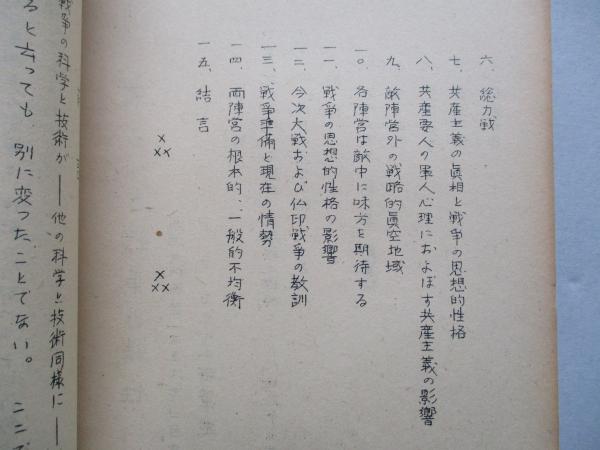 六、総力戦
七、共産主義の眞相と戦争の思想的性格
八、共産要人の軍人心理におよぼす共産主義の影響
九、敵陣営外の戦略的眞空地域
一〇、各陣営は敵中に味方を期待する
一一、戦争の思想的性格の影響
一二、今次大戦および仏印戦争の教訓
一三、戦争準備と現在の情勢
一四、両陣営の根本的、一般的不均衡
一五、結言
×
××
×
××
戦争の科学と技術が──他の科学と技術同様に──
ると云っても 別に変った、ことでない。 ここで